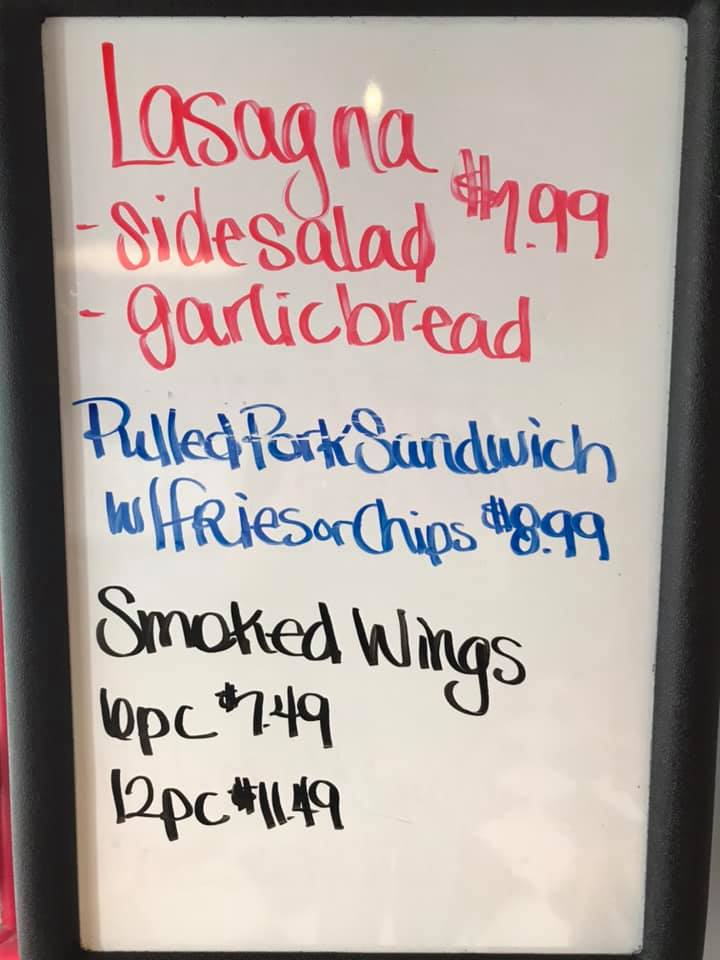 Lasagna
- sidesalad $7.99
- garlicbread
Pulled Pork Sandwich
w/ fRies or Chips $8.99
Smoked Wings
6pc $7.49
12pc $11.49